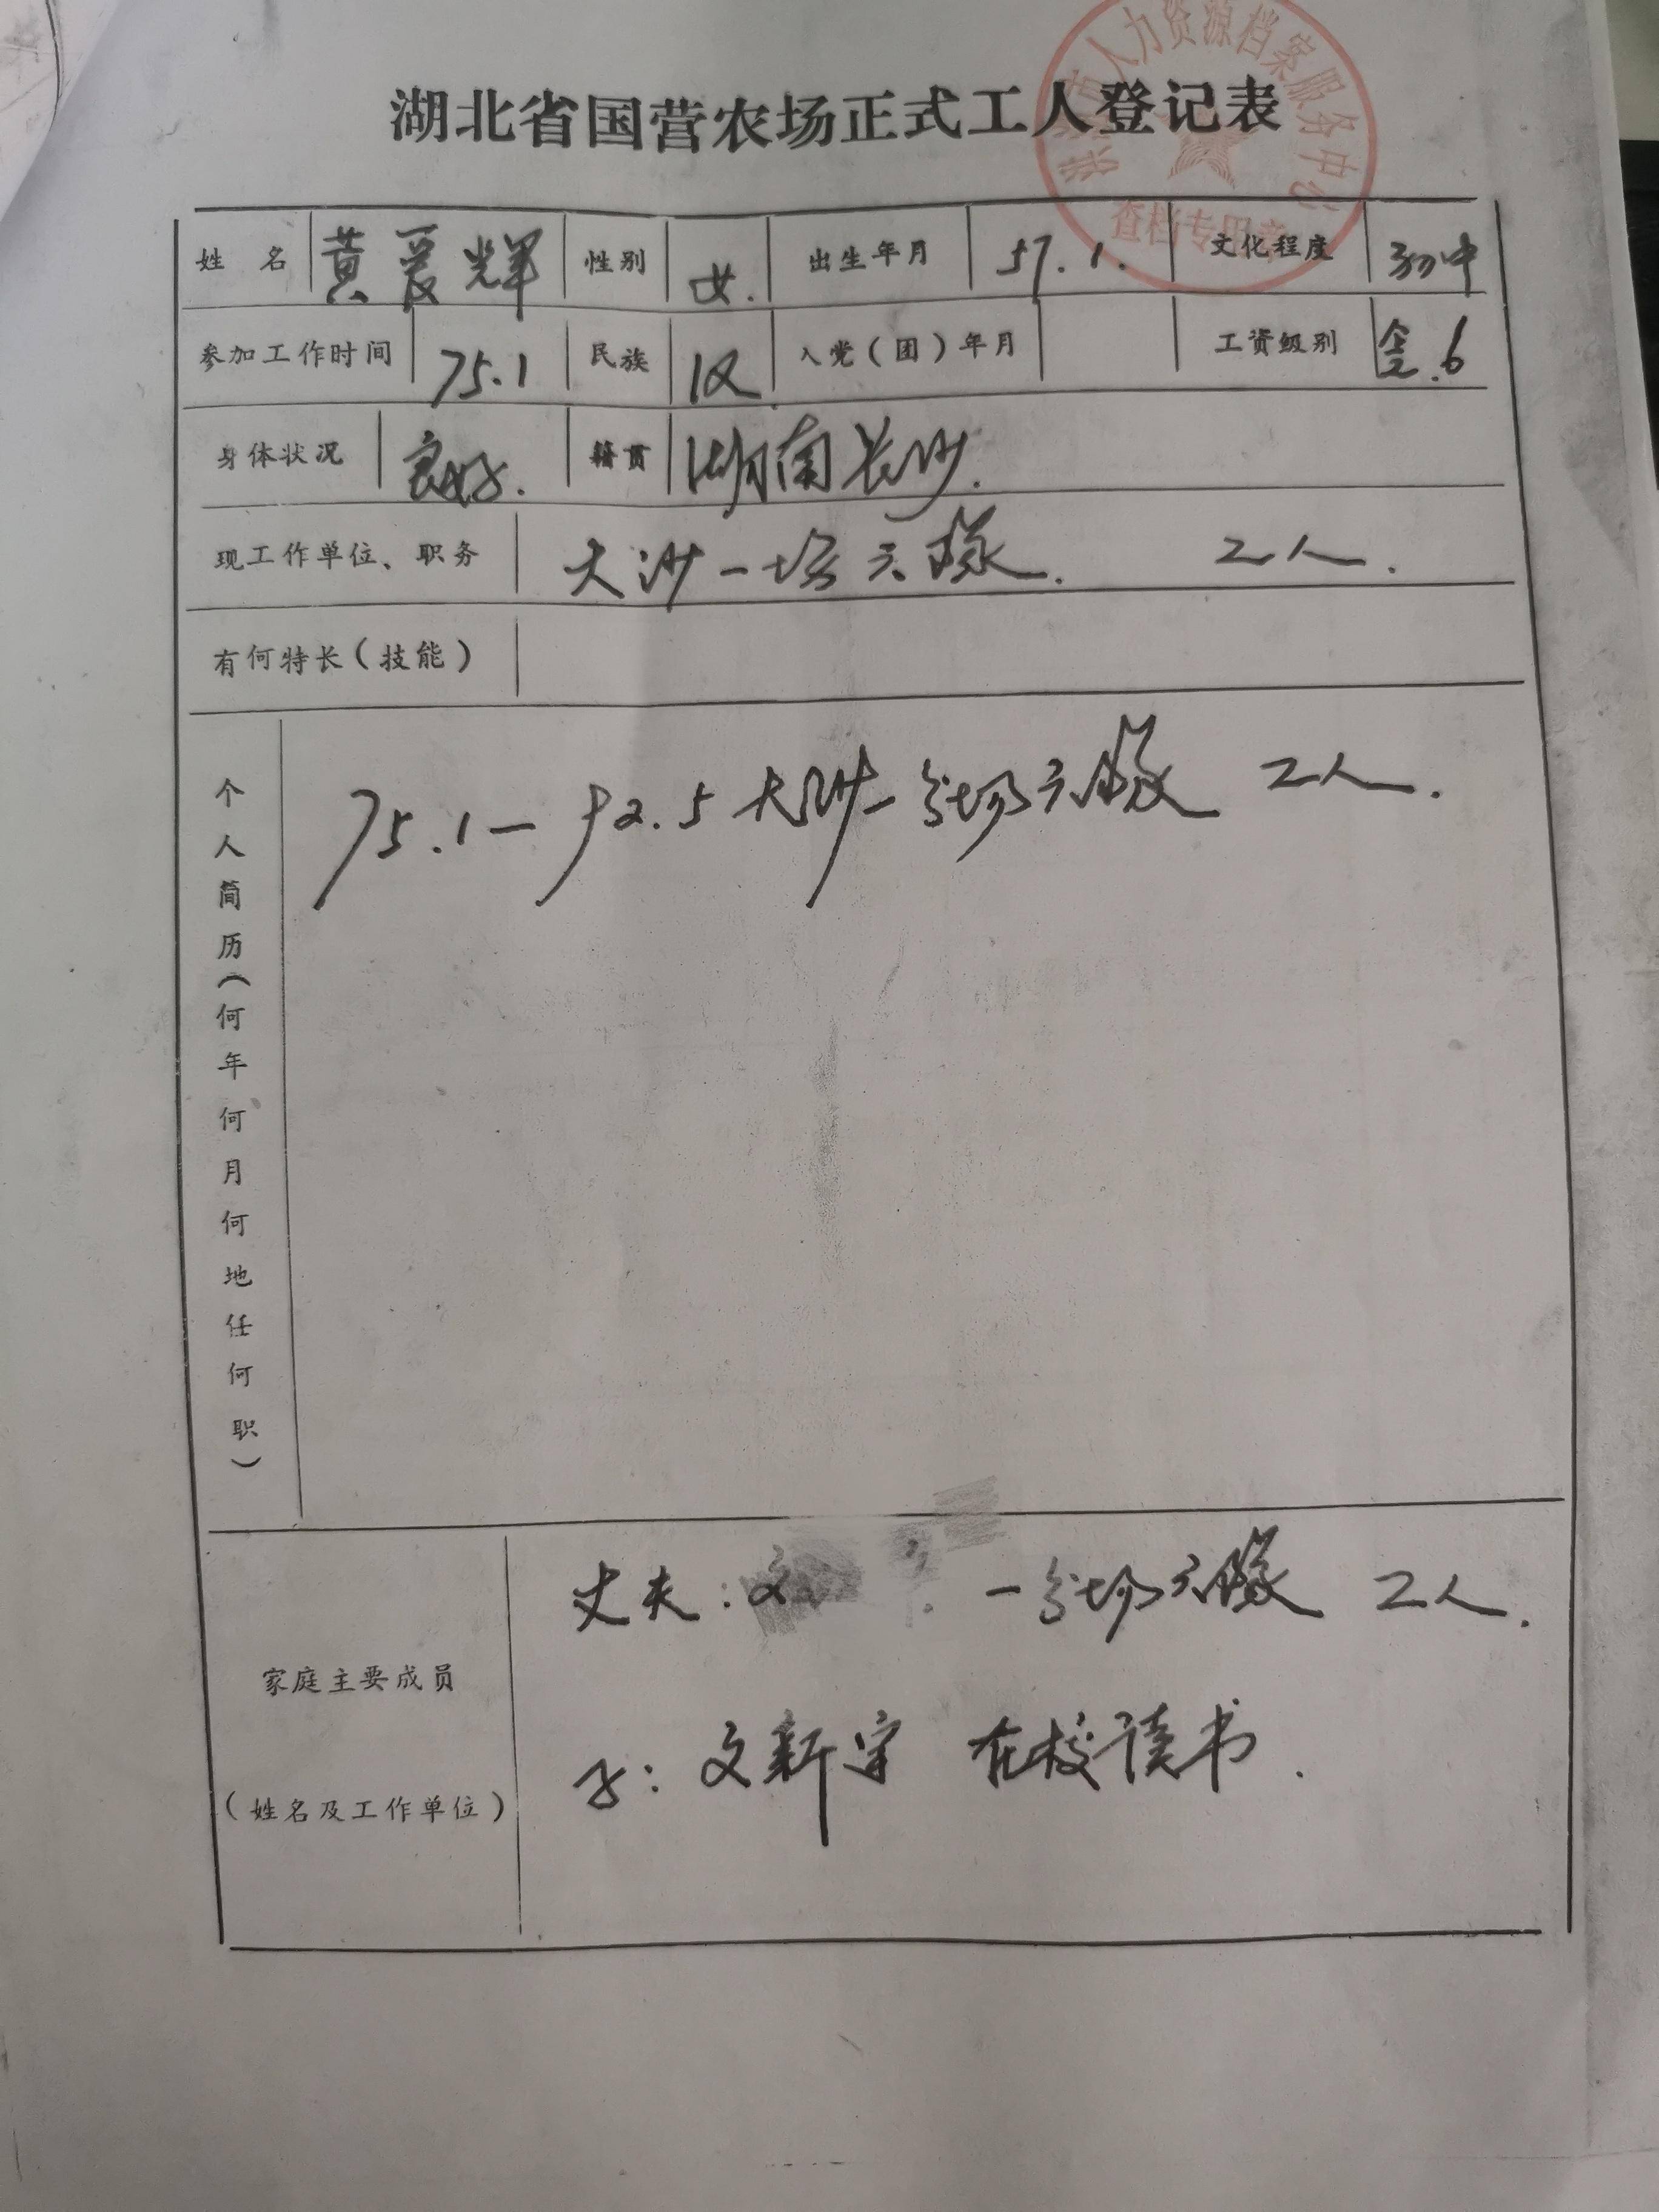 湖北省国营农场正式工人登记表
人力资源档案服务中心
查档专用章
姓 名 黄爱辉 性别 女. 出生年月 57.1. 文化程度 初中
参加工作时间 75.1 民族 汉 入党(团)年月 工资级别 6
身体状况 良好. 籍贯 湖南长沙.
现工作单位、职务 大沙一场六队. 工人.
有何特长(技能)
个人简历(何年何月何地任何职)
75.1—92.5 大沙一分场六队 工人.
家庭主要成员
(姓名及工作单位)
丈夫: 文 一分场六队 工人.
子: 文新宇 在校读书.